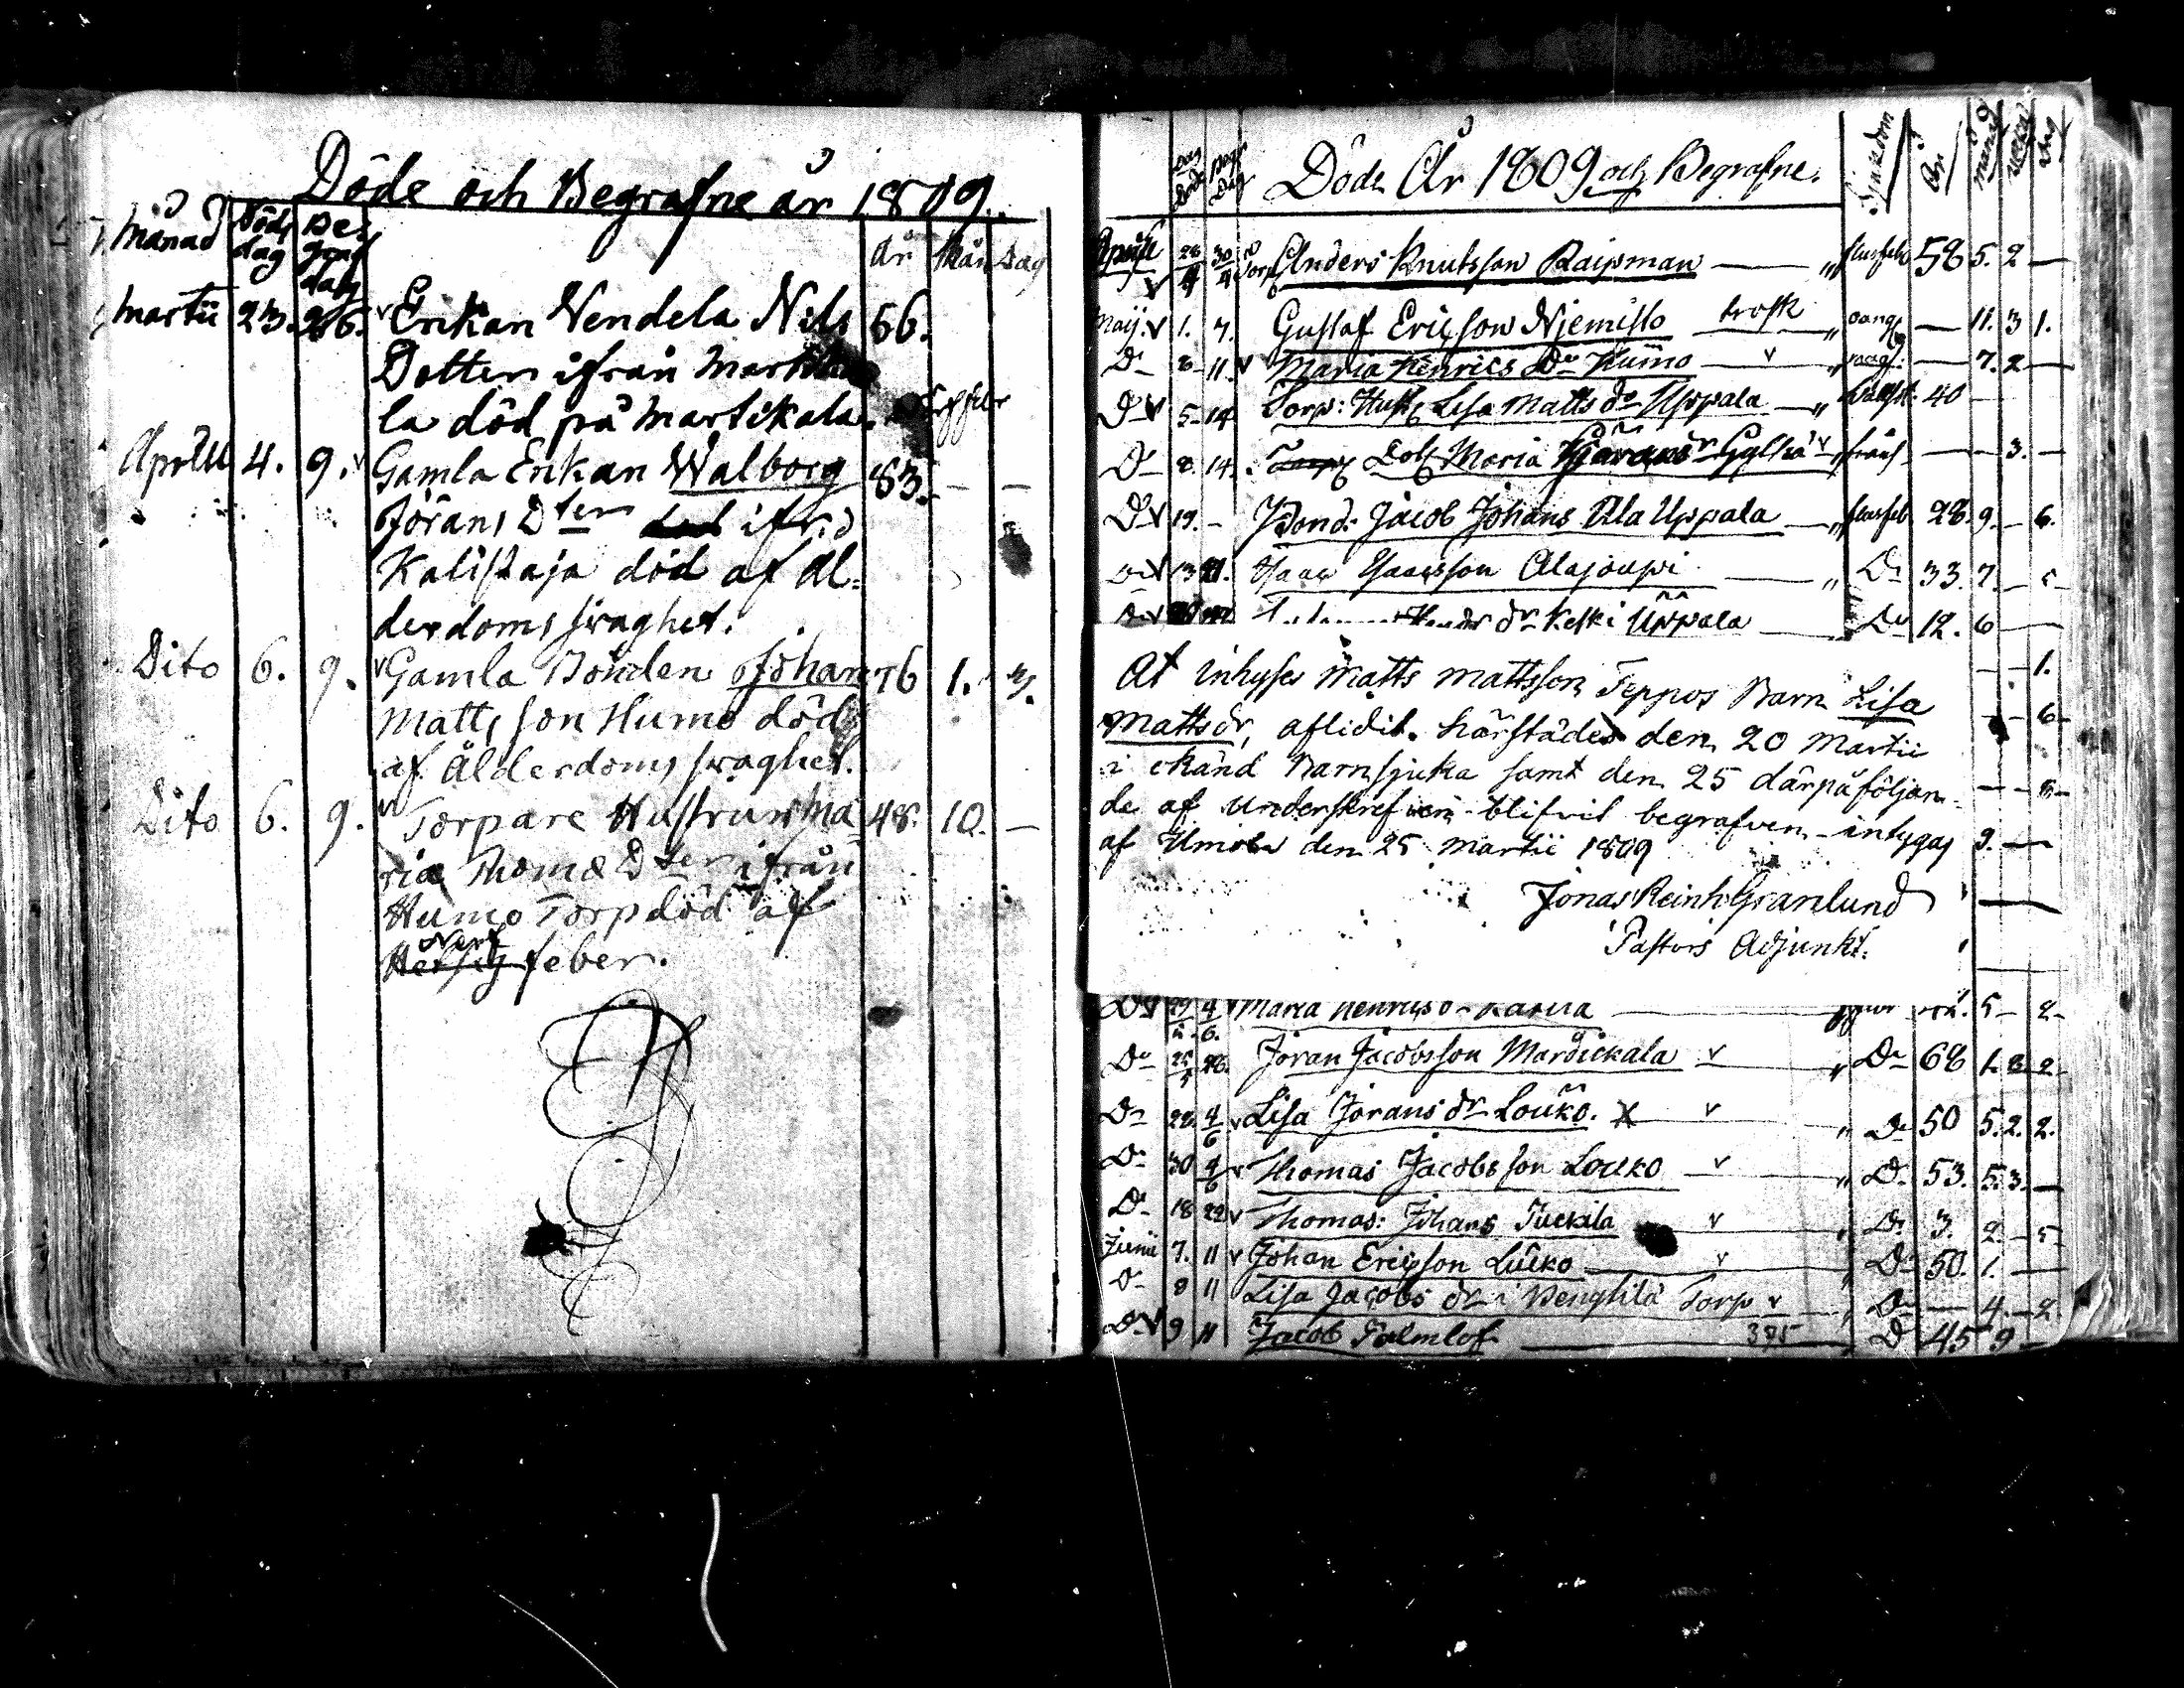 Döde och Begrafne år 1809.
Månad Döds dag Be- graf dag år Mån Dag
Martii 23. 26. Enkan Vendela Nils 56.
Dotter ifrån Martika
la död på Martikala.
Aprill 4. 9. Gamla Enkan Walborg 83. — —
Jörans Dter ifrå
Kalistaja död af Ål-
derdoms svaghet.
Dito 6. 9. Gamla Bonden Johan 76 1. 3.
Matts son Humo död
af Ålderdoms svaghet.
Dito 6. 9. Torpare Hustrun Ma 48. 10. —
ria Thomæ Dter ifrån
Humo Torp död af
Nerf
feber.
Döde År 1809 och Begrafne.
Sjukdom År månad veckor dag
Aprill 28/4 30/4 Torp Anders Knutsson Raipman — 58 5. 2 —
Maij. 1. 7. Gustaf Ericsson Niemisto trosk — 11. 3 1.
Do 6 11. Maria Henrics Dr Humo — 7. 2 —
Do 5 14 Torp: Hust Lisa Matts dr Uppala 40 —
Do 8. 14. Dot Maria — — 3. —
Do 19. — Bond: Jacob Johans Ala Uppala 28. 9. — 6.
Isaac Isaacsson Alajoupi Do 33. 7. —
dr Keski Uppala Do 12. 6 —
At inhyses Matts Mattsson Teppos Barn Lisa
Mattsdr, aflidit härstädes den 20 Martii
i okänd Barnsjuka samt den 25 därpåföljan-
de af Underskrefven blifvit begrafven intygas
af Umiola den 25 Martii 1809
Jonas Reinh Granlund
Pastors Adjunkt.
— — 1.
— — 6
9. —
Do 29/5. 4/6. Maria Henrics 5 — 2
Do 25/5 28. Jöran Jacobsson Mardickala Do 68 1. 3. 2
Do 28. 4/6 Lisa Jörans dr Louko. Do 50 5. 2. 2.
Do 30 4/6 Thomas Jacobsson Louko Do 53. 5. 3. —
Do 18 22 Thomas: Johans Tuckala Do 3. 2. — 5
Junii 7. 11 Johan Ericsson Luko Do 50. 1. —
Do 8 11 Lisa Jacobs dr i Bengtila Torp Do — 4. — 2.
Do 9 11 Jacob Palmlöf 375 Do 45 9 —